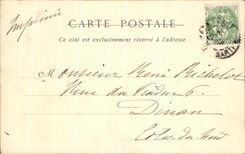 Imprimé
CARTE POSTALE
Ce côté est exclusivement réservé à l'adresse
Monsieur René Bichelot
Rue du Viaduc 6
Dinan
Côtes du Nord